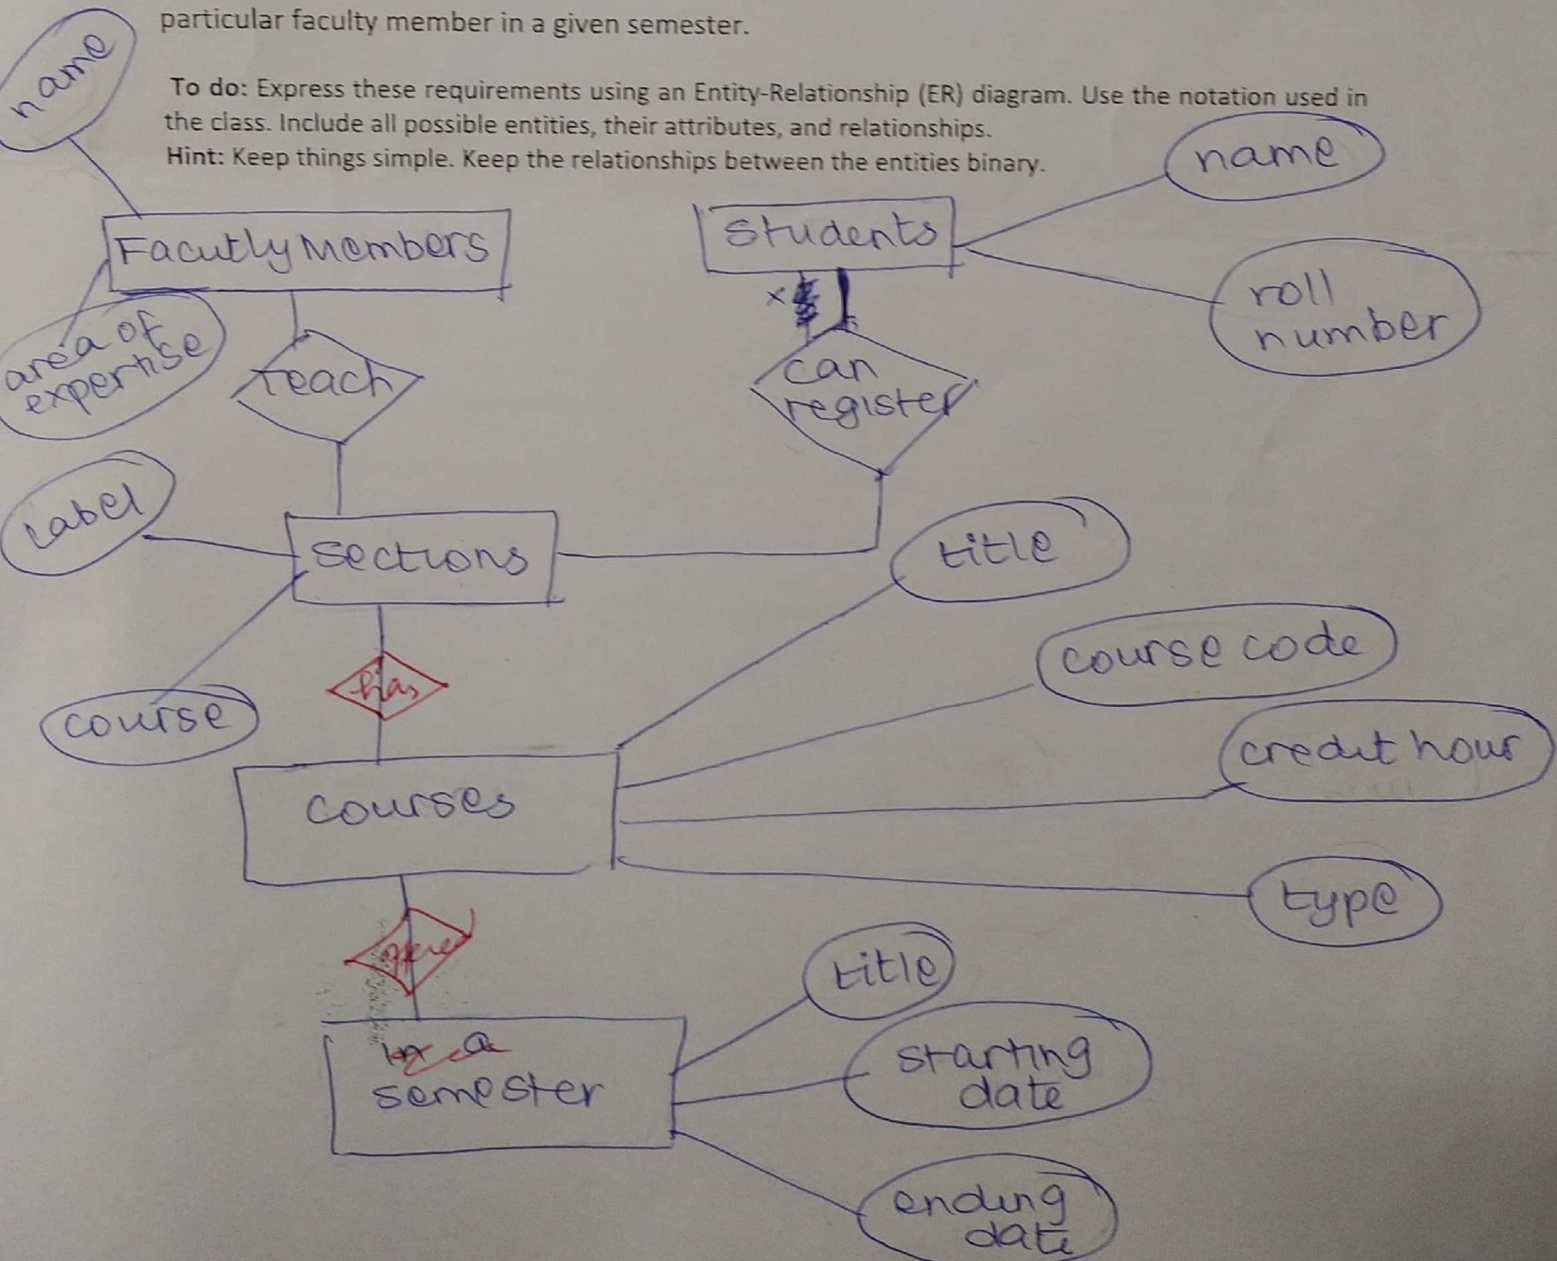 particular faculty member in a given semester.
To do: Express these requirements using an Entity-Relationship (ER) diagram. Use the notation used in
the class. Include all possible entities, their attributes, and relationships.
Hint: Keep things simple. Keep the relationships between the entities binary.
name
name
Facutly Members
Students
roll
number
area of
expertise
x
teach
can
register
Label
sections
title
course code
has
course
credit hour
courses
type
offered
title
in a
semester
starting
date
ending
date